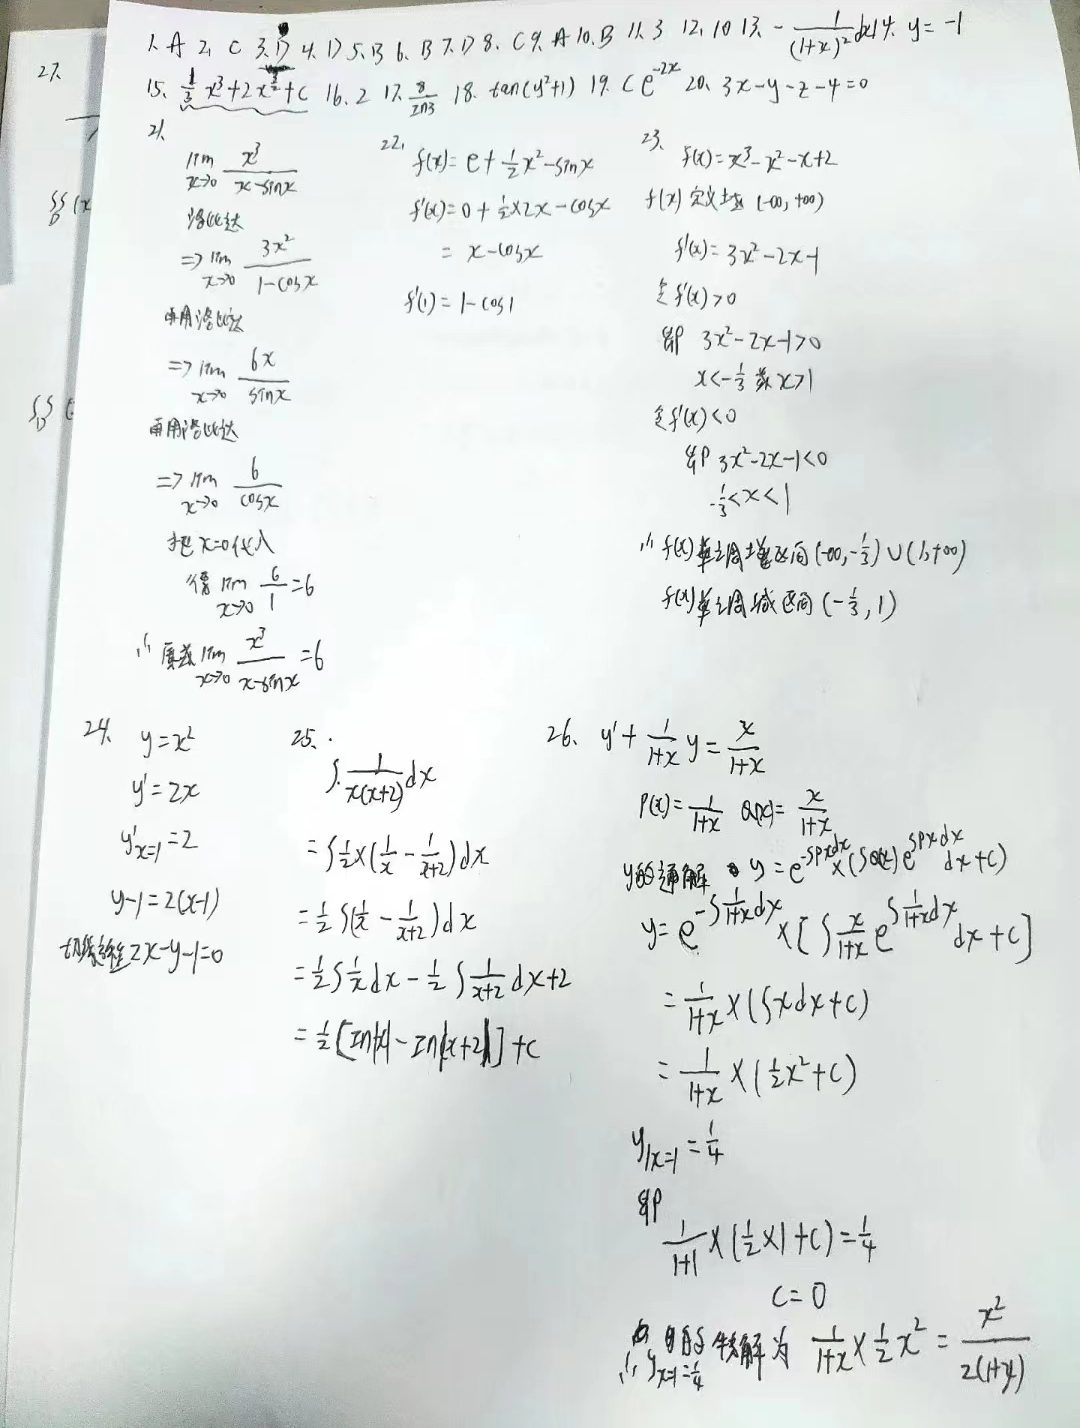 1. A 2. C 3. D 4. D 5. B 6. B 7. D 8. C 9. A 10. B 11. 3 12. 10 13. -1/(1+x)² dx 14. y=-1
15. 1/3 x³+2x^(3/2)+C 16. 2 17. 8/ln3 18. tan(y²+1) 19. Ce^(-2x) 20. 3x-y-z-4=0
21.
lim x→0 x³/(x-sinx)
洛必达
=> lim x→0 3x²/(1-cosx)
再用洛必达
=> lim x→0 6x/sinx
再用洛必达
=> lim x→0 6/cosx
把x=0代入
得 lim x→0 6/1=6
∴ 原式 lim x→0 x³/(x-sinx)=6
22.
f(x)=e+1/2x²-sinx
f'(x)=0+1/2×2x-cosx
= x-cosx
f'(1)=1-cos1
23.
f(x)=x³-x²-x+2
f(x)定义域(-∞,+∞)
f'(x)=3x²-2x-1
令f'(x)>0
即 3x²-2x-1>0
x<-1/3 或 x>1
令f'(x)<0
即 3x²-2x-1<0
-1/3<x<1
∴ f(x)单调增区间(-∞,-1/3)∪(1,+∞)
f(x)单调减区间(-1/3,1)
24. y=x²
y'=2x
y'x=1=2
y-1=2(x-1)
切线方程2x-y-1=0
25.
∫1/(x(x+2))dx
=∫1/2×(1/x-1/(x+2))dx
=1/2∫(1/x-1/(x+2))dx
=1/2∫1/x dx-1/2∫1/(x+2)dx+2
=1/2[ln|x|-ln|x+2|]+C
26. y'+1/(1+x) y=x/(1+x)
P(x)=1/(1+x) Q(x)=x/(1+x)
y的通解 y=e^(-∫Pxdx)×(∫Q(x)e^(∫Pxdx)dx+C)
y=e^(-∫1/(1+x)dx)×[∫x/(1+x) e^(∫1/(1+x)dx)dx+C]
=1/(1+x)×(∫xdx+C)
=1/(1+x)×(1/2x²+C)
y|x=1=1/4
即
1/(1+1)×(1/2×1+C)=1/4
C=0
∴ y|x=1=1/4 的特解为 1/(1+x)×1/2x²=x²/(2(1+x))
27.
∬D(x
∬D(